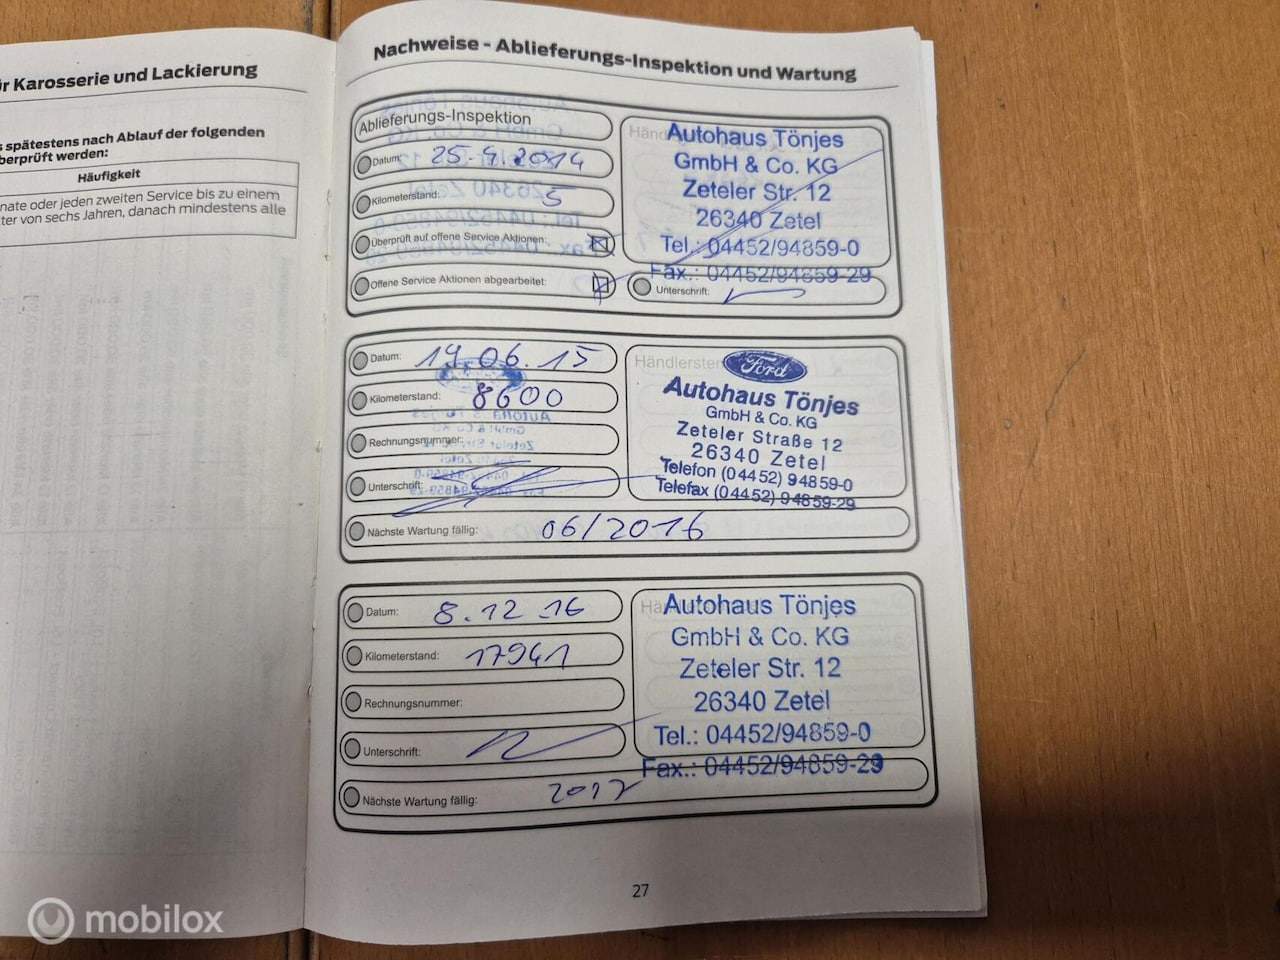 ür Karosserie und Lackierung
s spätestens nach Ablauf der folgenden
berprüft werden:
Häufigkeit
nate oder jeden zweiten Service bis zu einem
ter von sechs Jahren, danach mindestens alle
Nachweise - Ablieferungs-Inspektion und Wartung
Ablieferungs-Inspektion
Datum: 25.9.2014
Kilometerstand: 5
Überprüft auf offene Service Aktionen:
Offene Service Aktionen abgearbeitet:
Autohaus Tönjes
GmbH & Co. KG
Zeteler Str. 12
26340 Zetel
Tel.: 04452/94859-0
Fax.: 04452/94859-29
Unterschrift:
Datum: 19.06.15
Kilometerstand: 8600
Rechnungsnummer:
Unterschrift:
Nächste Wartung fällig: 06/2016
Ford
Autohaus Tönjes
GmbH & Co. KG
Zeteler Straße 12
26340 Zetel
Telefon (04452) 94859-0
Telefax (04452) 94859-29
Datum: 8.12.16
Kilometerstand: 17941
Rechnungsnummer:
Unterschrift:
Nächste Wartung fällig: 2017
Autohaus Tönjes
GmbH & Co. KG
Zeteler Str. 12
26340 Zetel
Tel.: 04452/94859-0
Fax.: 04452/94859-29
27
mobilox